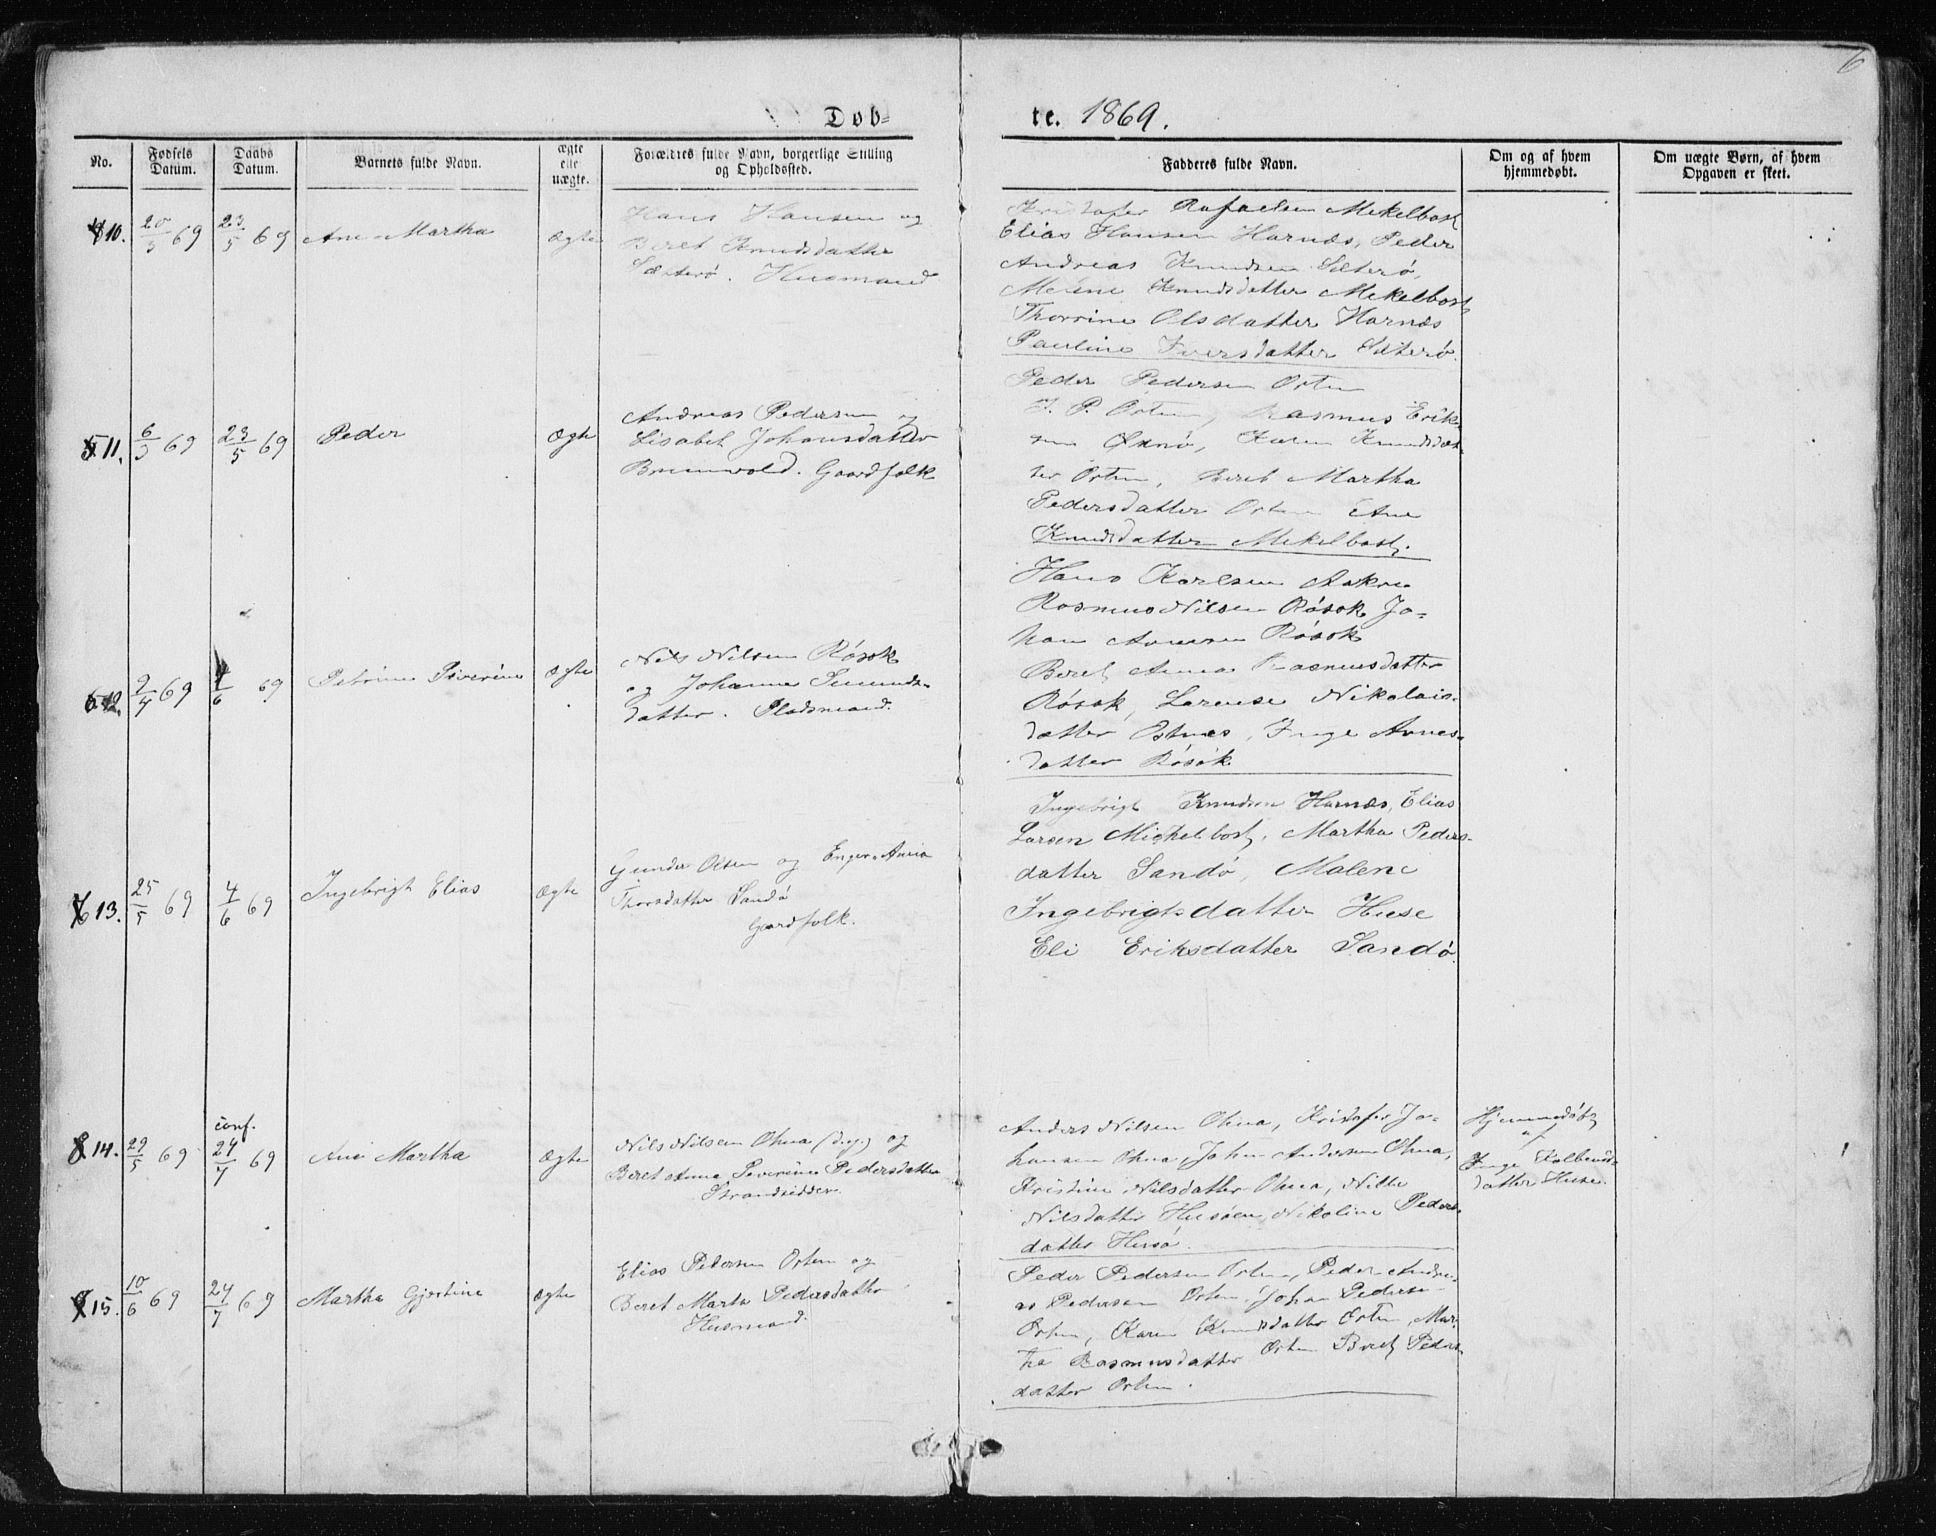 6
Døb=
te. 1869.
No.
Fødsels Datum.
Daabs Datum.
Barnets fulde Navn.
ægte elle uægte.
Forældres fulde Navn, borgerlige Stilling og Opholdssted.
Fadderes fulde Navn.
Om og af hvem hjemmedøbt.
Om uægte Børn, af hvem Opgaven er skeet.
10. 20/3 69 23/5 69 Ane Martha Ægte
Hans Hansen og
Beret Knudsdatter
Sæterø. Husmand
Kristofer Rafaelsen Mekelbost
Elias Hansen Harnæs, Peder
Andreas Knudsen Sæterø,
Malene Knudsdatter Mekelbost
Thorrine Olsdatter Harnæs
Pauline Iversdatter Sæterø.
11. 6/3 69 23/5 69 Peder Ægte
Andreas Pedersen og
Lisabet Johansdatter
Brunvold. Gaardfolk
Peder Pedersen Orten
J. P. Orten, Rasmus Erik-
sen Oxnø, Karen Knudsdat-
ter Orten, Beret Martha
Pedersdatter Orten Ane
Knudsdatter Mekelbost.
12. 2/4 69 4/6 69 Petrine Siverine Ægte
Nils Nilsen Røsok
og Johanne Simunds-
datter. Pladsmand.
Hans Karlsen Aakre
Rasmus Nilsen Røsok Jo-
han Arnesen Røsok
Beret Anna Rasmusdatter
Røsok, Larense Nikolais-
datter Østnes, Inge Arnes-
datter Røsok
13. 25/5 69 4/6 69 Ingebrigt Elias Ægte
Gunder Olsen og Enger Ania
Thorsdatter Sandø
Gardfolk.
Ingebrigt Knudsen Harnæs, Elias
Larsen Michelbost, Martha Peders-
datter Sandø, Malene
Ingebrigtsdatter Huse
Eli Eriksdatter Sandø.
14. 29/5 69 conf. 24/7 69 Ane Martha Ægte
Nils Nilsen Ohna (d.y.) og
Beret Anna Severine Pedersdatter
Strandsidder.
Anders Nilsen Ohna, Kristofer Jo-
hansen Ohna, John Andersen Ohna,
Kristine Nilsdatter Ohna, Nille
Nilsdatter Husøen, Nikoline Peders-
datter Husø.
Hjemmedøbt
af
Inge Kolbens-
datter Huse.
15. 10/6 69 24/7 69 Martha Gjertine Ægte
Elias Pedersen Orten og
Beret Marta Pedersdatter
Husmand.
Peder Pedersen Orten, Peder Andre-
as Pedersen Orten, Johan Pedersen
Orten, Karen Knudsdatter Orten, Mar-
the Rasmusdatter Orten Beret Peders-
datter Orten.